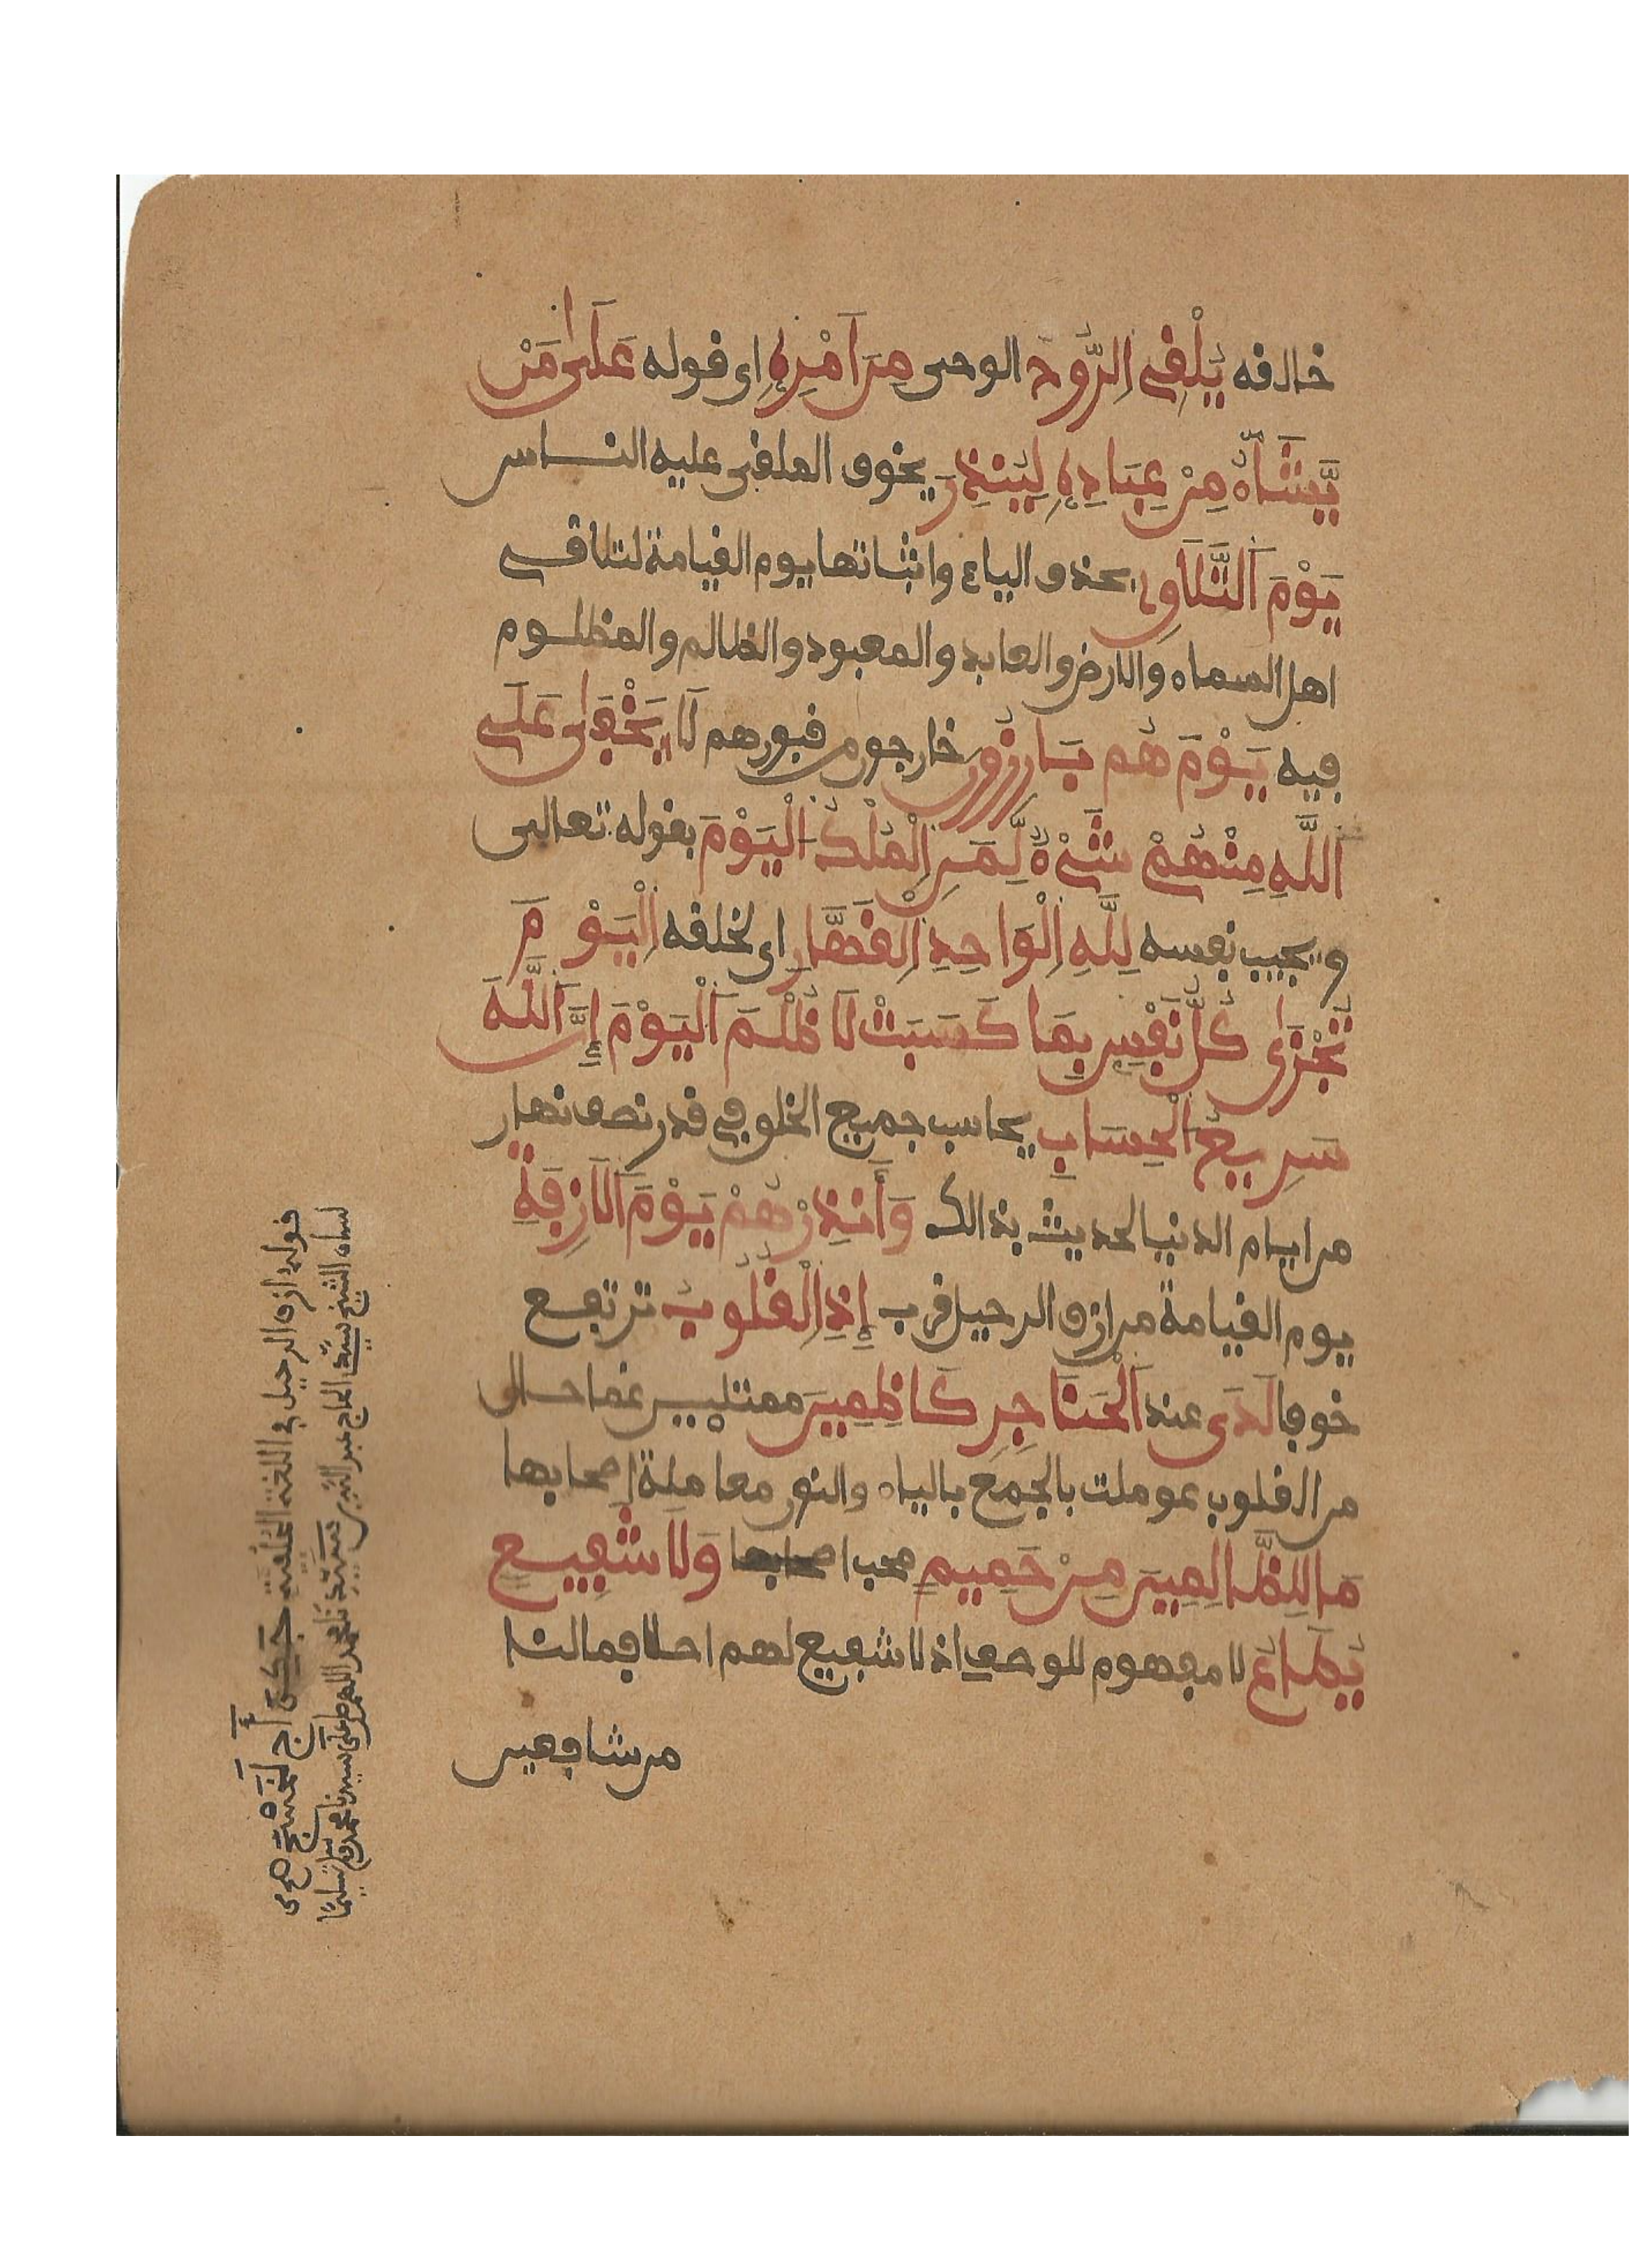 خالفه يُلْفِى اِلرُّوحَ الوحى مِنَ اَمْرِهِ اى فوله عَلَىٰ مَنْ
يَّشَآءُ مِنْ عِبَادِهِ لِيُنذِرَ يخوف الملفى عليه الناس
يَوْمَ اَلتَّلَاقِ بحذف الياء واثباتها يوم الفيامة لتلاقى
اهل السماء والارض والعابد والمعبود والظالم والمظلوم
فيه يَوْمَ هُم بَارِزُونَ خارجون من فبورهم لَا يَخْفَىٰ عَلَى
اَللَّهِ مِنْهُمْ شَىْءٌ لِّمَنِ اِلْمُلْكُ اَلْيَوْمَ يفوله تعالى
ويجيب نفسه لِلَّهِ اِلْوَاحِدِ اِلْفَهَّارِ اى لخلفه اِلْيَوْمَ
تُجْزَىٰ كُلُّ نَفْسٍ بِمَا كَسَبَتْ لَا ظُلْمَ اَلْيَوْمَ إِنَّ اَللَّهَ
سَرِيعُ اَلْحِسَابِ يحاسب جميع الخلق في فدر نصف نهار
من ايام الدنيا لحديث بذالك وَأَنذِرْهُمْ يَوْمَ اَلَازِفَةِ
يوم الفيامة من ازف الرحيل فرب إِذِ اِلْفُلُوبُ ترتفع
خوفا لَدَى عند اَلْحَنَاجِرِ كَاظِمِينَ ممتلئين غما حال
من الفلوب عوملت بالجمع بالياء والنون معاملة اصحابها
مَا لِلظَّالِمِينَ مِنْ حَمِيمٍ محب وَلَا شَفِيعٍ
يُطَاعُ لا مفهوم للوصف اذ لا شفيع لهم اصلا فمالنا
من شافعين
فوله ازف الرحيل في اللغة
لسان الشيخ سيد الحاج اللهم صل على سيدنا محمد وسلم تسليما